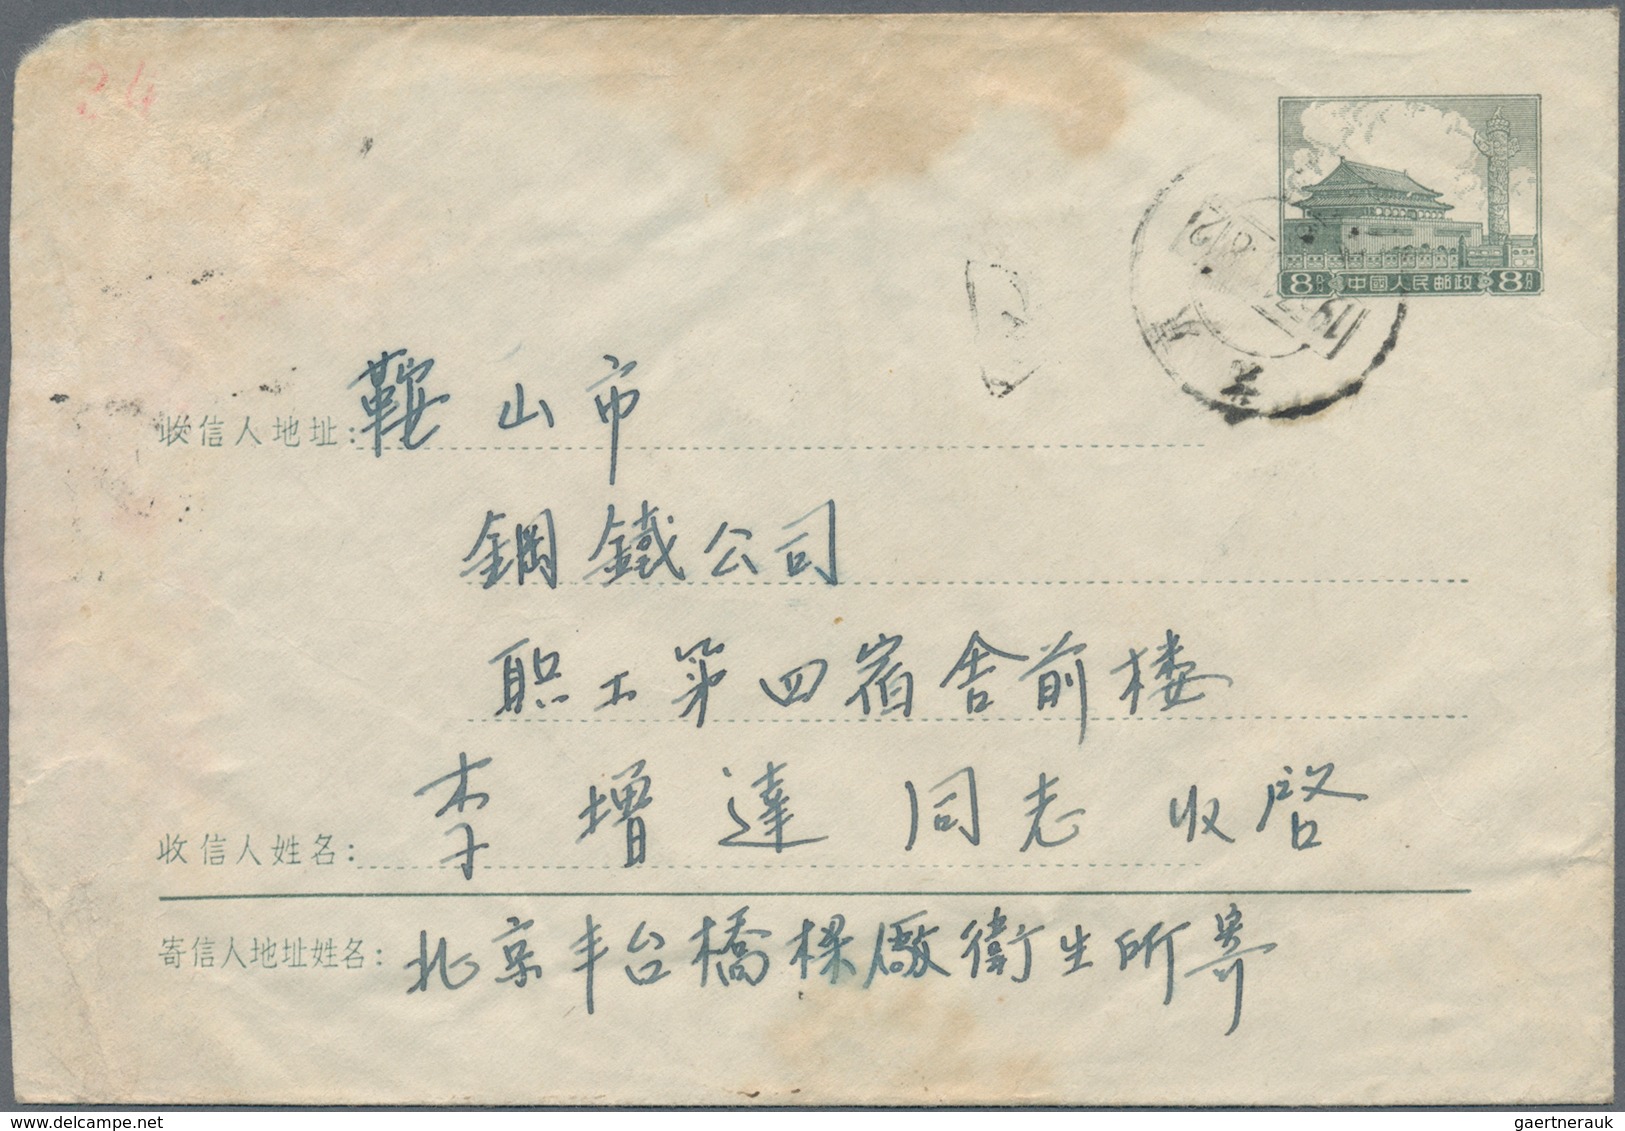 34
8分 中國人民邮政 8分
北京
收信人地址:鞍山市
鋼鐵公司
职工第四宿舍前楼
收信人姓名:李增達同志 收启
寄信人地址姓名:北京丰台橋樑廠衛生所寄
gaertnerauk